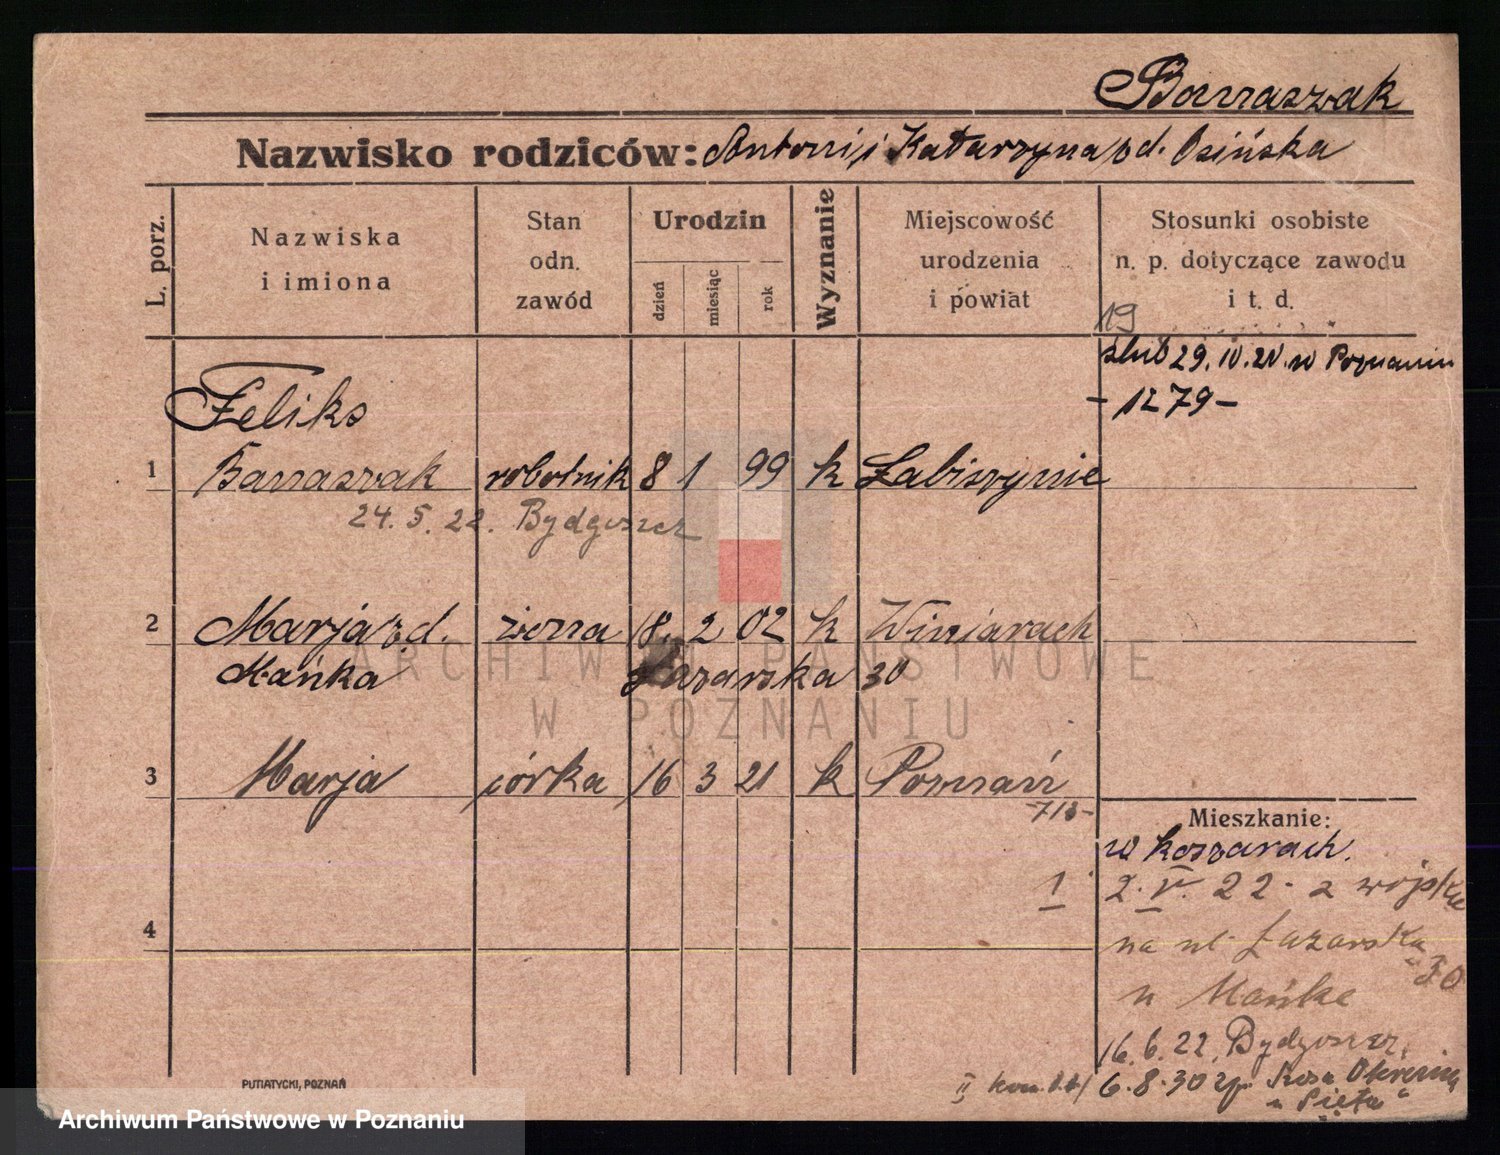 Banaszak
Nazwisko rodziców: Antoni i Katarzyna zd. Osińska
L. porz.
Nazwiska i imiona
Stan odn. zawód
Urodzin
dzień
miesiąc
rok
Wyznanie
Miejscowość urodzenia i powiat
Stosunki osobiste n. p. dotyczące zawodu i t. d.
19
ślub 29. IV. 20. w Poznaniu
- 1279 -
Feliks
1 Banaszak robotnik 8 1 99 k Łabiszynie
24. 5. 22. Bydgoszcz
2 Marja zd. żona 18. 2 02 k Winiarach
Mańka Łazarska 30
3 Marja córka 16 3 21 k Poznań
-713-
4
Mieszkanie:
w koszarach.
1 2. V. 22. z wojska
na ul. Łazarska
30
u Mańka
16. 6. 22. Bydgoszcz,
6. 8. 30
u Pięta
PUTIATYCKI, POZNAŃ
ARCHIWUM PAŃSTWOWE
W POZNANIU
Archiwum Państwowe w Poznaniu